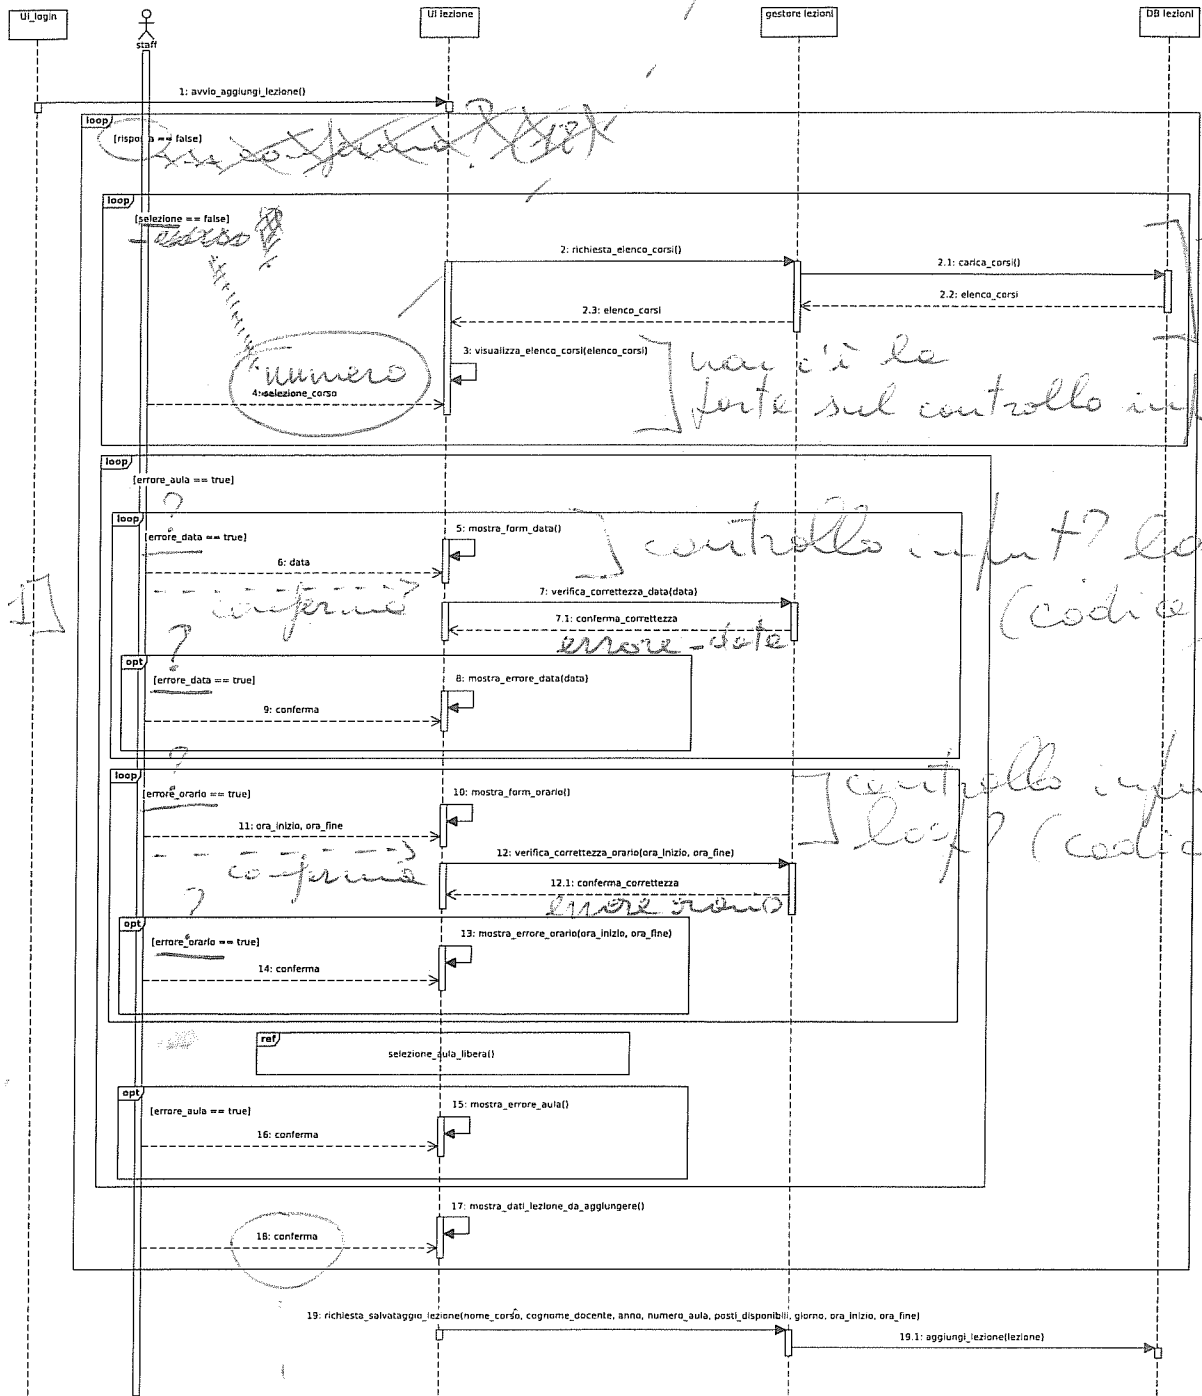 Ui_login
staff
UI lezione
gestore lezioni
DB lezioni
1: avvio_aggiungi_lezione()
loop
== false]
(18)
loop
[selezione == false]
corso
2: richiesta_elenco_corsi()
2.1: carica_corsi()
2.2: elenco_corsi
2.3: elenco_corsi
3: visualizza_elenco_corsi(elenco_corsi)
numero
4: selezione_corso
non c'è la
parte sul controllo
loop
[errore_aula == true]
?
loop
[errore_data == true]
5: mostra_form_data()
controllo input?
(codice
6: data
conferma
7: verifica_correttezza_data(data)
7.1: conferma_correttezza
errore-data
1]
?
opt
[errore_data == true]
8: mostra_errore_data(data)
9: conferma
?
loop
[errore_orario == true]
10: mostra_form_orario()
controllo
loop? (codic
11: ora_inizio, ora_fine
conferma
12: verifica_correttezza_orario(ora_inizio, ora_fine)
12.1: conferma_correttezza
errore orario
?
opt
[errore_orario == true]
13: mostra_errore_orario(ora_inizio, ora_fine)
14: conferma
ref
selezione_aula_libera()
opt
[errore_aula == true]
15: mostra_errore_aula()
16: conferma
17: mostra_dati_lezione_da_aggiungere()
18: conferma
19: richiesta_salvataggio_lezione(nome_corso, cognome_docente, anno, numero_aula, posti_disponibili, giorno, ora_inizio, ora_fine)
19.1: aggiungi_lezione(lezione)